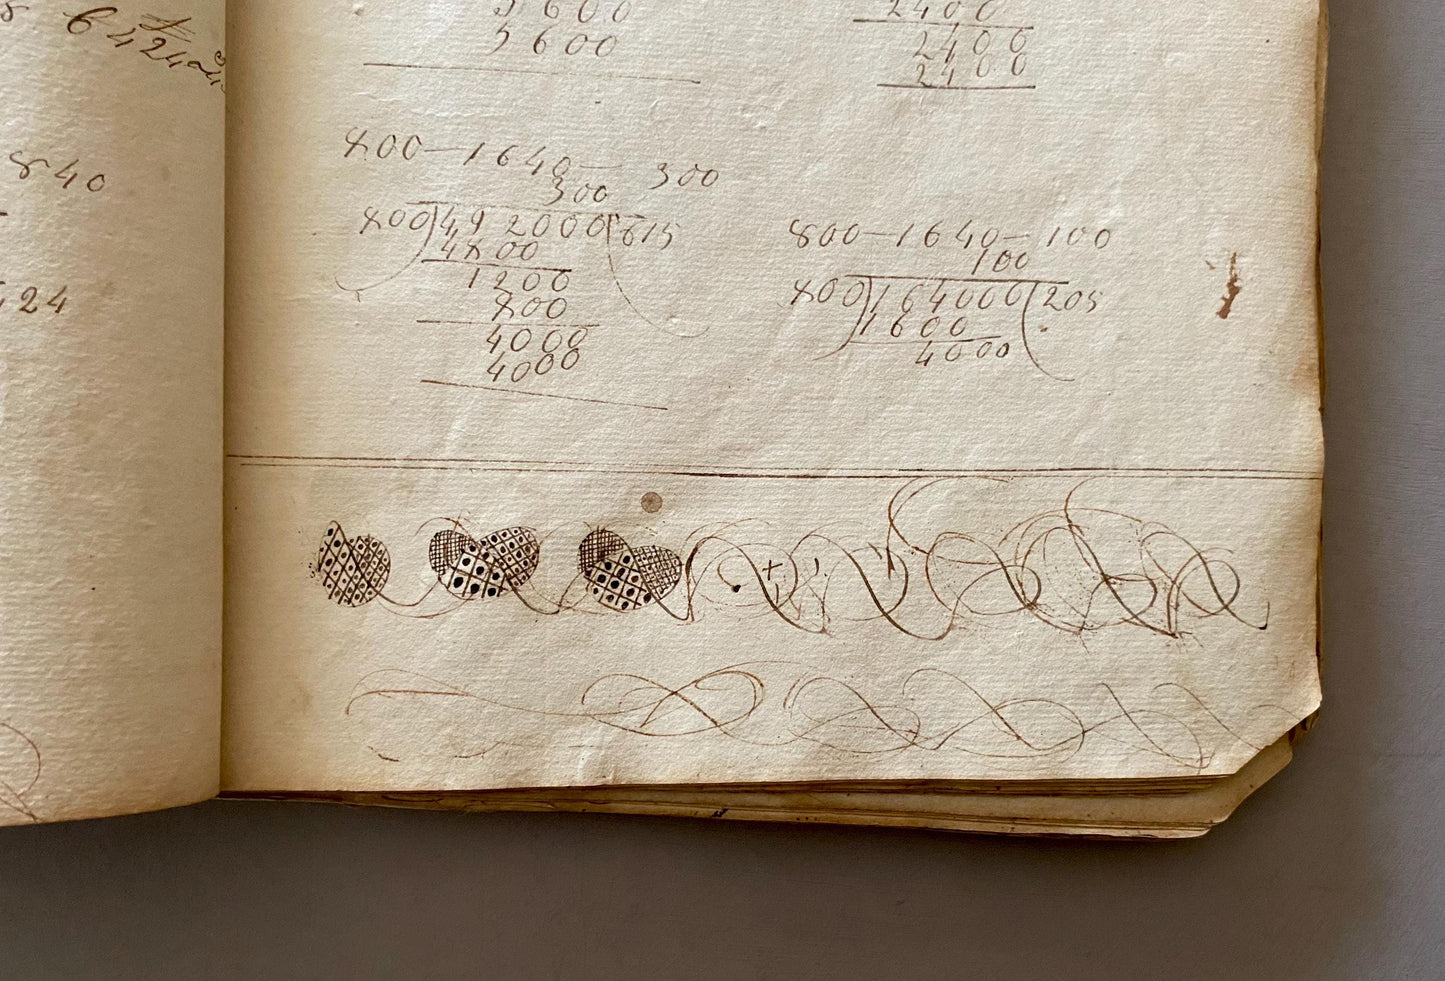 6424
840
424
5600
5600
2400
2400
2400
800—1640—300
300
800)492000(615
4800
1200
800
4000
4000
800—1640—100
100
800)164000(205
1600
4000